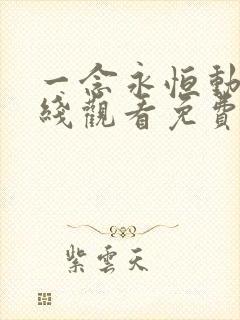 一念永恒動
綫觀看免費
紫雲天